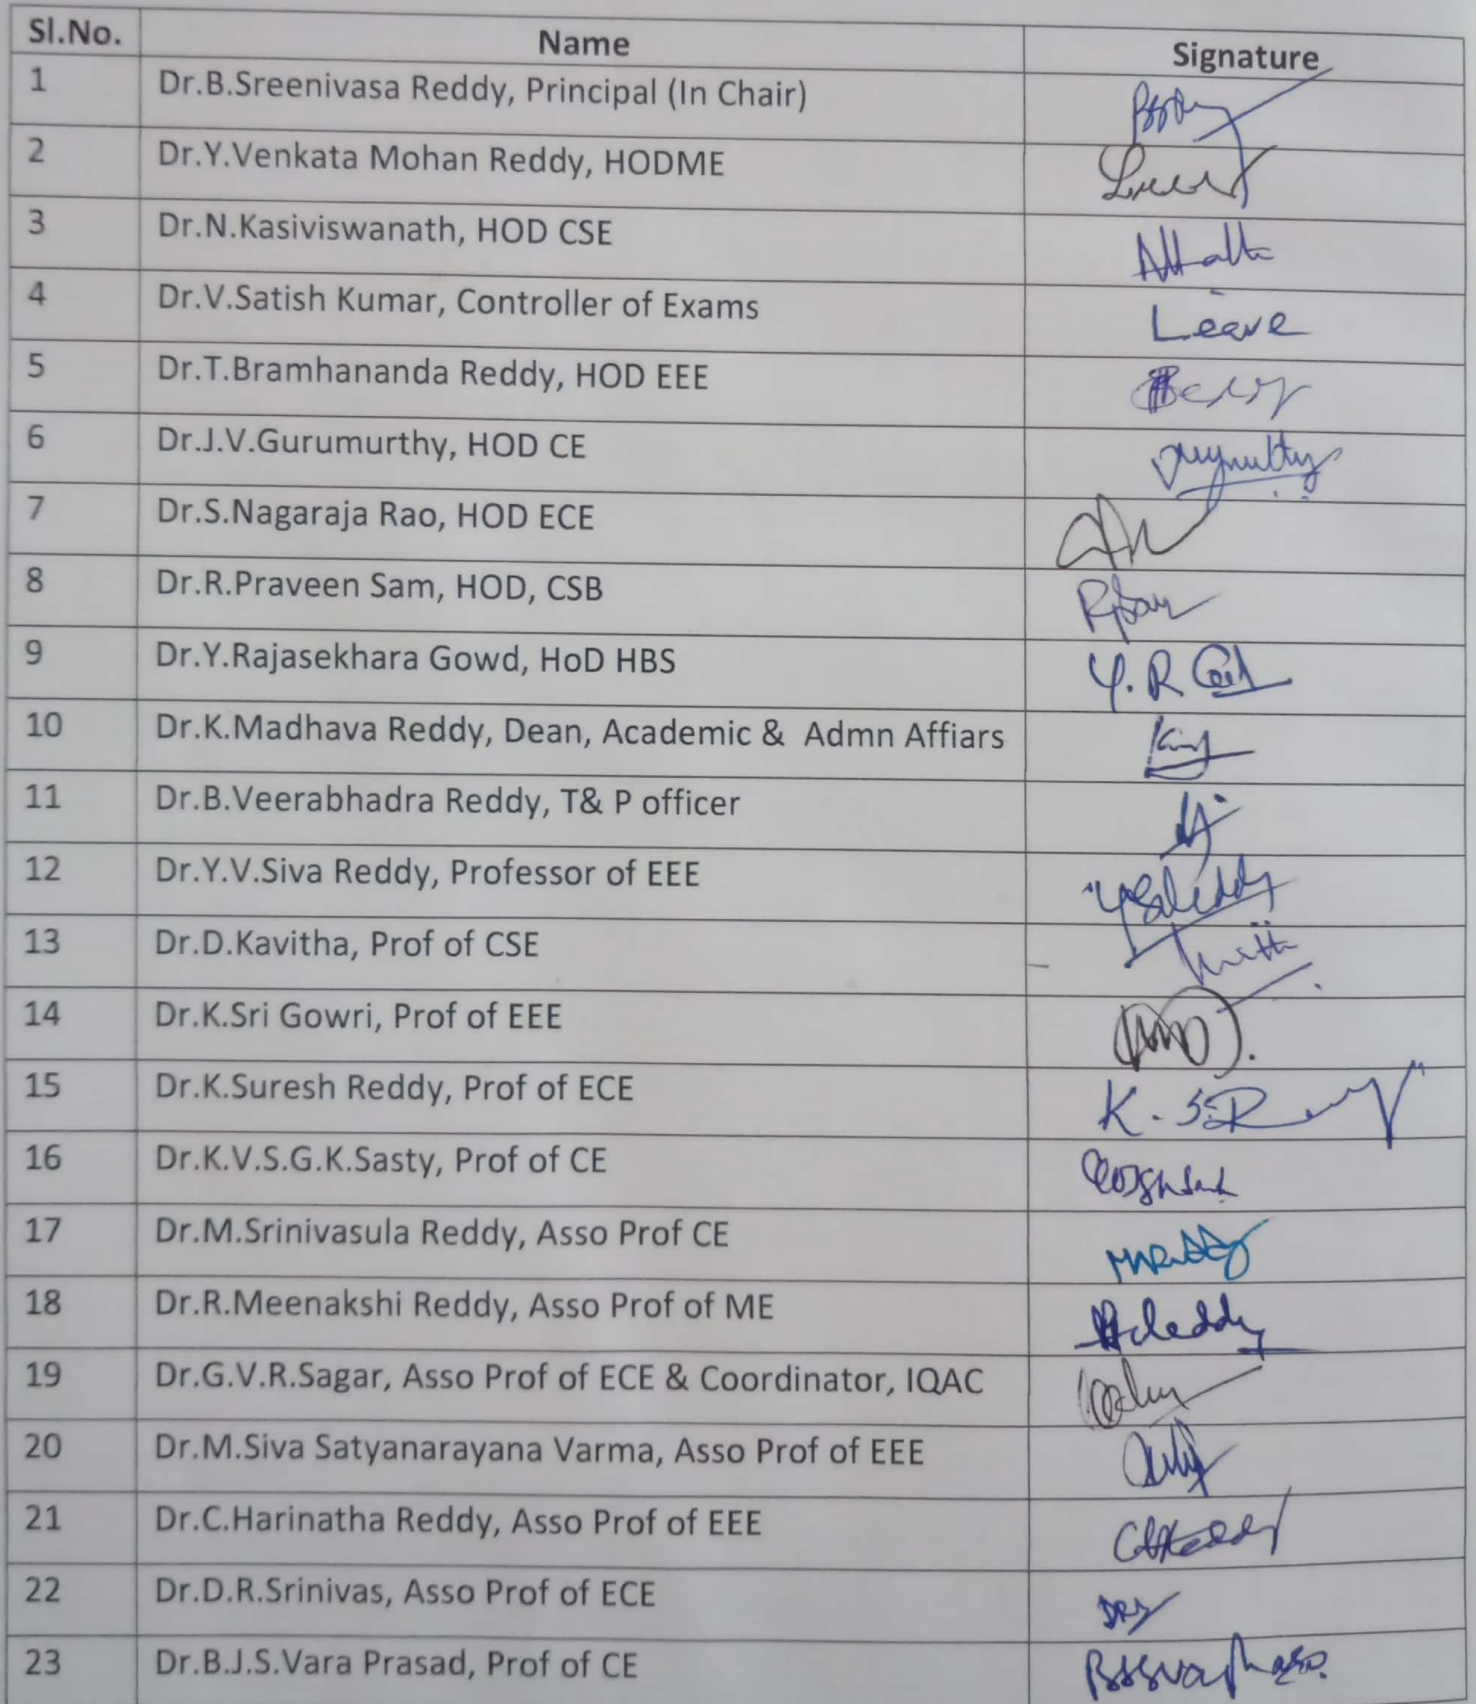 Sl.No. Name Signature
1 Dr.B.Sreenivasa Reddy, Principal (In Chair)
2 Dr.Y.Venkata Mohan Reddy, HODME
3 Dr.N.Kasiviswanath, HOD CSE
4 Dr.V.Satish Kumar, Controller of Exams Leave
5 Dr.T.Bramhananda Reddy, HOD EEE
6 Dr.J.V.Gurumurthy, HOD CE
7 Dr.S.Nagaraja Rao, HOD ECE
8 Dr.R.Praveen Sam, HOD, CSB
9 Dr.Y.Rajasekhara Gowd, HoD HBS Y.R
10 Dr.K.Madhava Reddy, Dean, Academic & Admn Affiars
11 Dr.B.Veerabhadra Reddy, T& P officer
12 Dr.Y.V.Siva Reddy, Professor of EEE
13 Dr.D.Kavitha, Prof of CSE
14 Dr.K.Sri Gowri, Prof of EEE
15 Dr.K.Suresh Reddy, Prof of ECE
16 Dr.K.V.S.G.K.Sasty, Prof of CE
17 Dr.M.Srinivasula Reddy, Asso Prof CE
18 Dr.R.Meenakshi Reddy, Asso Prof of ME
19 Dr.G.V.R.Sagar, Asso Prof of ECE & Coordinator, IQAC
20 Dr.M.Siva Satyanarayana Varma, Asso Prof of EEE
21 Dr.C.Harinatha Reddy, Asso Prof of EEE
22 Dr.D.R.Srinivas, Asso Prof of ECE
23 Dr.B.J.S.Vara Prasad, Prof of CE